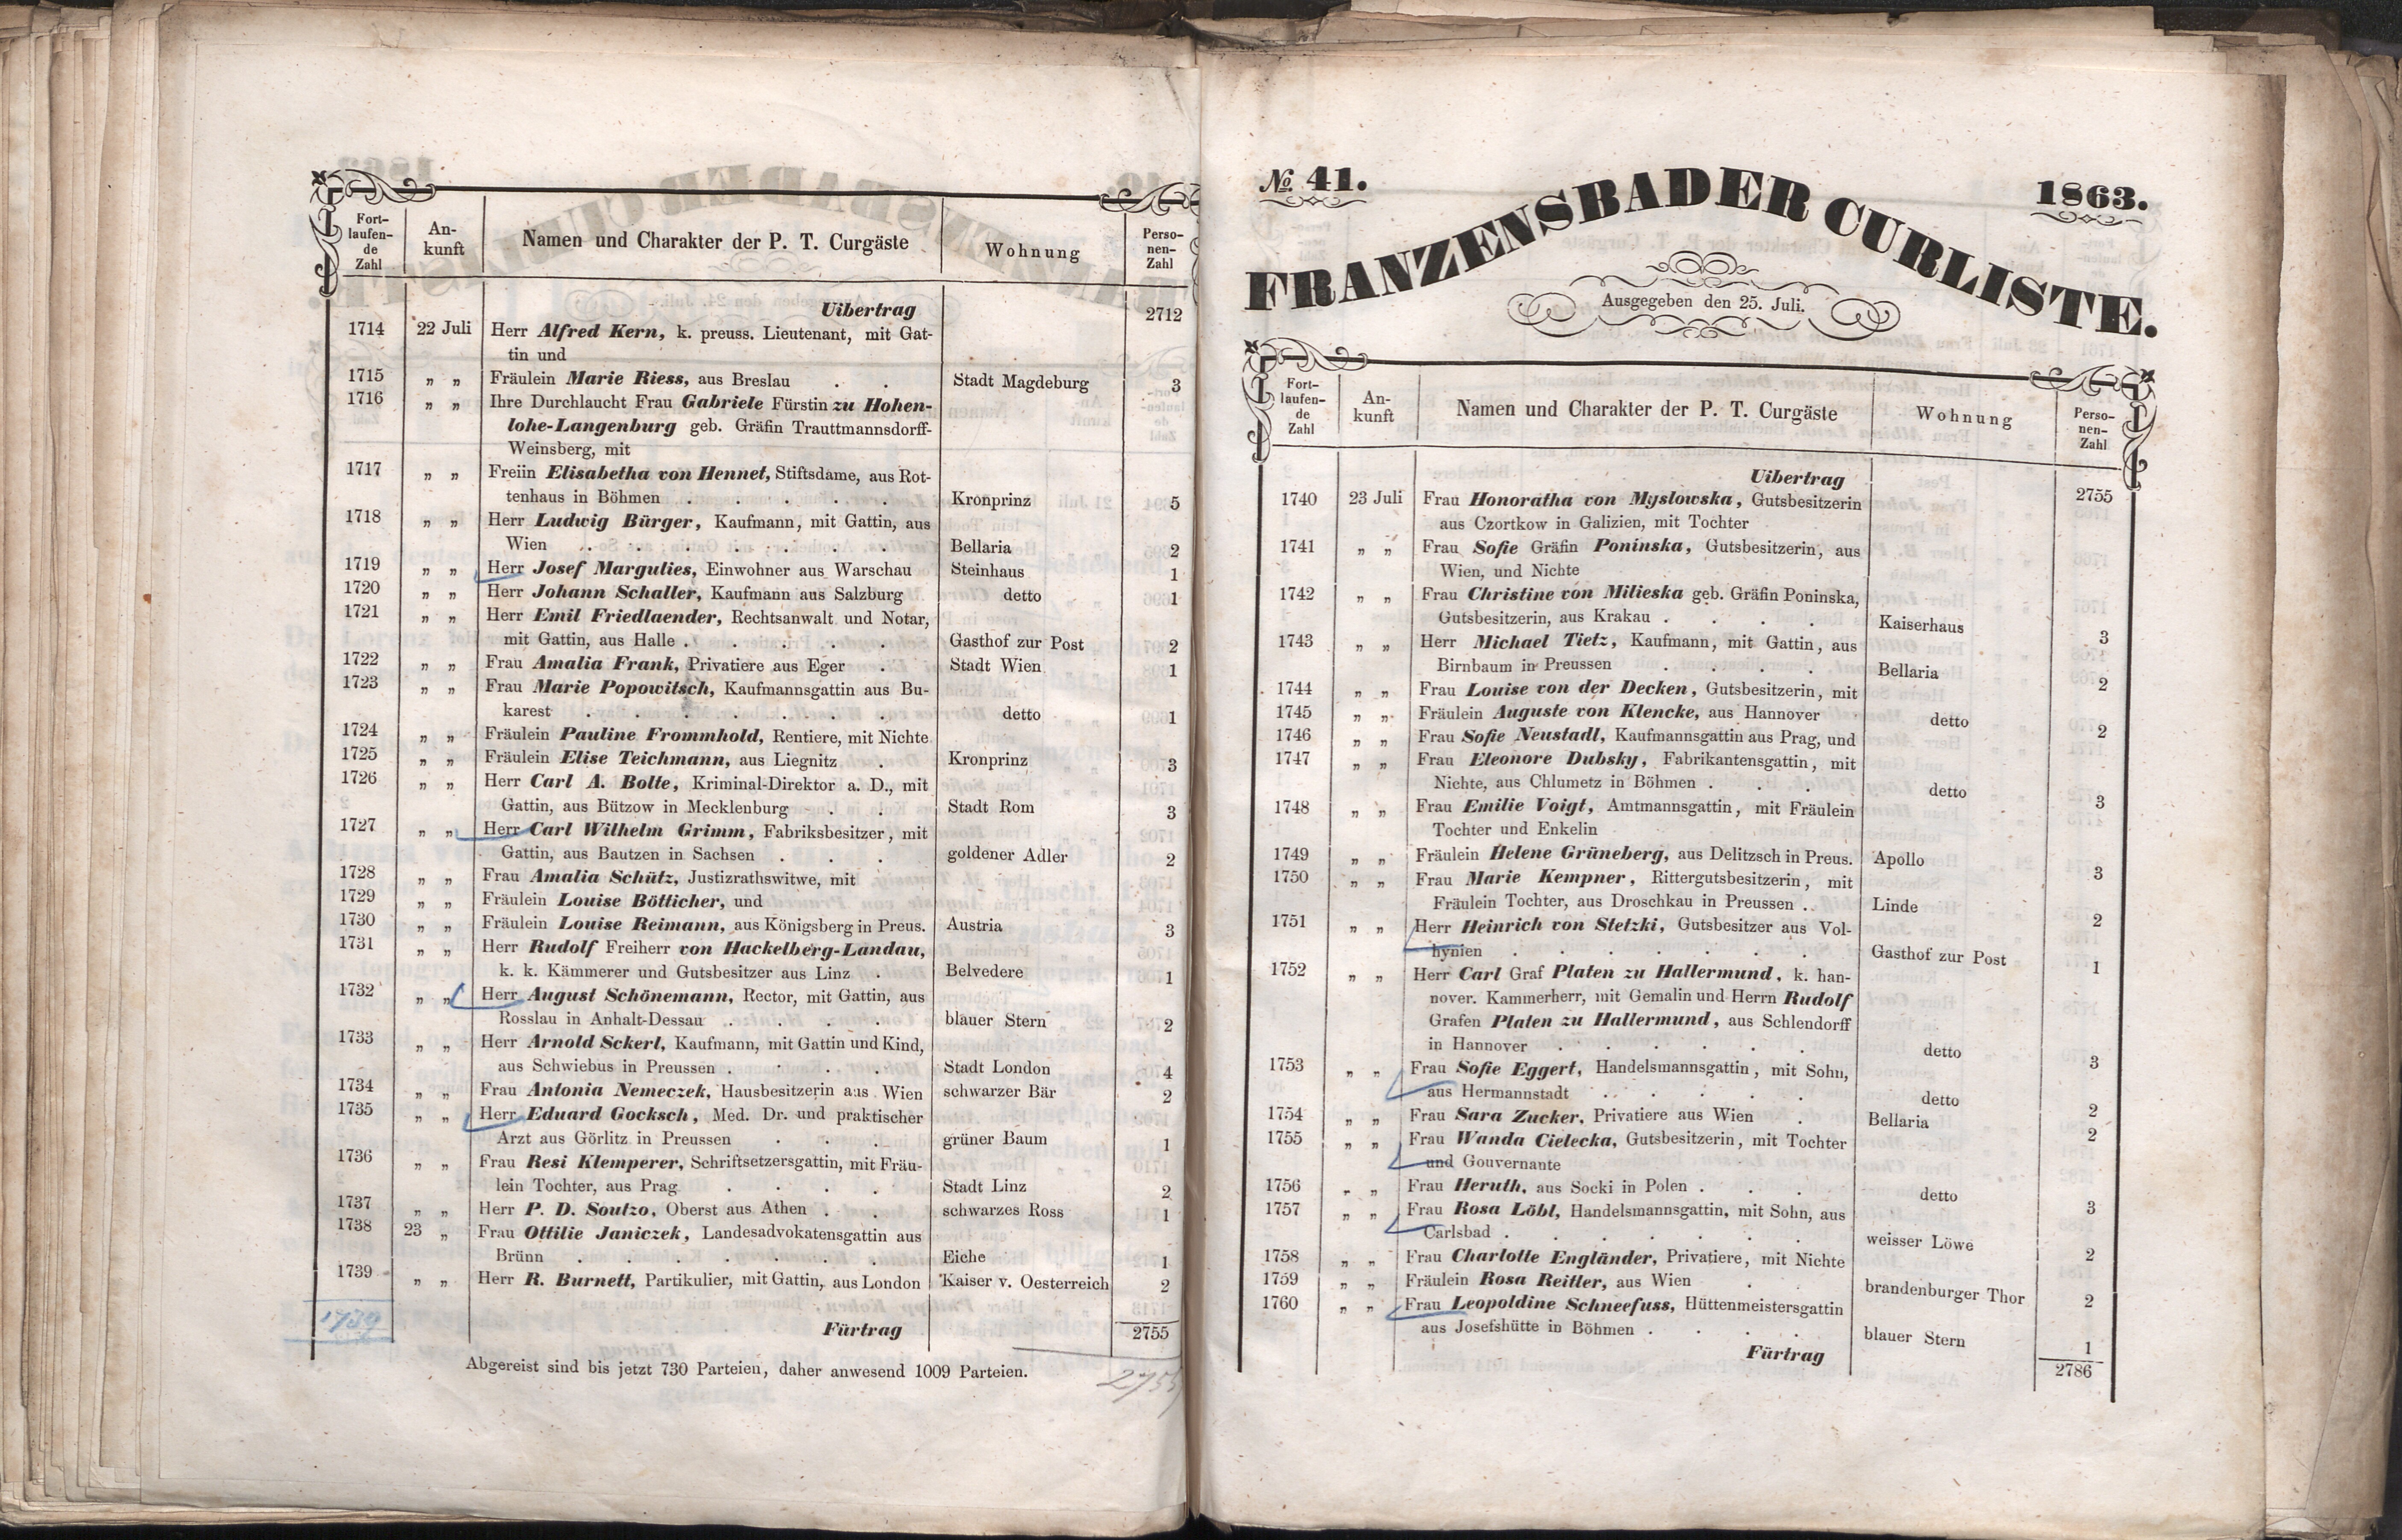 Fort-
laufen-
de
Zahl
An-
kunft
Namen und Charakter der P. T. Curgäste
Wohnung
Perso-
nen-
Zahl
Uibertrag 2712
1714 22 Juli Herr Alfred Kern, k. preuss. Lieutenant, mit Gat-
tin und
1715 „ „ Fräulein Marie Riess, aus Breslau . . Stadt Magdeburg 3
1716 „ „ Ihre Durchlaucht Frau Gabriele Fürstin zu Hohen-
lohe-Langenburg geb. Gräfin Trauttmannsdorff-
Weinsberg, mit
1717 „ „ Freiin Elisabetha von Hennet, Stiftsdame, aus Rot-
tenhaus in Böhmen . . . . . Kronprinz 5
1718 „ „ Herr Ludwig Bürger, Kaufmann, mit Gattin, aus
Wien . . . . . . . Bellaria 2
1719 „ „ Herr Josef Margulies, Einwohner aus Warschau Steinhaus 1
1720 „ „ Herr Johann Schaller, Kaufmann aus Salzburg detto 1
1721 „ „ Herr Emil Friedlaender, Rechtsanwalt und Notar,
mit Gattin, aus Halle . . . . . Gasthof zur Post 2
1722 „ „ Frau Amalia Frank, Privatiere aus Eger . Stadt Wien 1
1723 „ „ Frau Marie Popowitsch, Kaufmannsgattin aus Bu-
karest . . . . . . . detto 1
1724 „ „ Fräulein Pauline Frommhold, Rentiere, mit Nichte
1725 „ „ Fräulein Elise Teichmann, aus Liegnitz . Kronprinz 3
1726 „ „ Herr Carl A. Bolte, Kriminal-Direktor a. D., mit
Gattin, aus Bützow in Mecklenburg . . Stadt Rom 3
1727 „ „ Herr Carl Wilhelm Grimm, Fabriksbesitzer, mit
Gattin, aus Bautzen in Sachsen . . . goldener Adler 2
1728 „ „ Frau Amalia Schütz, Justizrathswitwe, mit
1729 „ „ Fräulein Louise Bötticher, und
1730 „ „ Fräulein Louise Reimann, aus Königsberg in Preus. Austria 3
1731 „ „ Herr Rudolf Freiherr von Hackelberg-Landau,
k. k. Kämmerer und Gutsbesitzer aus Linz . Belvedere 1
1732 „ „ Herr August Schönemann, Rector, mit Gattin, aus
Rosslau in Anhalt-Dessau . . . . blauer Stern 2
1733 „ „ Herr Arnold Sckerl, Kaufmann, mit Gattin und Kind,
aus Schwiebus in Preussen . . . . Stadt London 4
1734 „ „ Frau Antonia Nemeczek, Hausbesitzerin aus Wien schwarzer Bär 2
1735 „ „ Herr Eduard Gocksch, Med. Dr. und praktischer
Arzt aus Görlitz in Preussen . . . grüner Baum 1
1736 „ „ Frau Resi Klemperer, Schriftsetzersgattin, mit Fräu-
lein Tochter, aus Prag . . . . Stadt Linz 2
1737 „ „ Herr P. D. Soutzo, Oberst aus Athen . . schwarzes Ross 1
1738 23 „ Frau Ottilie Janiczek, Landesadvokatensgattin aus
Brünn . . . . . . . Eiche 1
1739 „ „ Herr R. Burnett, Partikulier, mit Gattin, aus London Kaiser v. Oesterreich 2
1739
Fürtrag 2755
Abgereist sind bis jetzt 730 Parteien, daher anwesend 1009 Parteien.
2755
№ 41.
1863.
FRANZENSBADER CURLISTE.
Ausgegeben den 25. Juli.
Fort-
laufen-
de
Zahl
An-
kunft
Namen und Charakter der P. T. Curgäste
Wohnung
Perso-
nen-
Zahl
Uibertrag 2755
1740 23 Juli Frau Honoratha von Myslowska, Gutsbesitzerin
aus Czortkow in Galizien, mit Tochter
1741 „ „ Frau Sofie Gräfin Poninska, Gutsbesitzerin, aus
Wien, und Nichte
1742 „ „ Frau Christine von Milieska geb. Gräfin Poninska,
Gutsbesitzerin, aus Krakau . . . . Kaiserhaus 3
1743 „ „ Herr Michael Tietz, Kaufmann, mit Gattin, aus
Birnbaum in Preussen . . . . Bellaria 2
1744 „ „ Frau Louise von der Decken, Gutsbesitzerin, mit
1745 „ „ Fräulein Auguste von Klencke, aus Hannover detto 2
1746 „ „ Frau Sofie Neustadl, Kaufmannsgattin aus Prag, und
1747 „ „ Frau Eleonore Dubsky, Fabrikantensgattin, mit
Nichte, aus Chlumetz in Böhmen . . . detto 3
1748 „ „ Frau Emilie Voigt, Amtmannsgattin, mit Fräulein
Tochter und Enkelin
1749 „ „ Fräulein Helene Grüneberg, aus Delitzsch in Preus. Apollo 3
1750 „ „ Frau Marie Kempner, Rittergutsbesitzerin, mit
Fräulein Tochter, aus Droschkau in Preussen . . Linde 2
1751 „ „ Herr Heinrich von Stetzki, Gutsbesitzer aus Vol-
hynien . . . . . . . Gasthof zur Post 1
1752 „ „ Herr Carl Graf Platen zu Hallermund, k. han-
nover. Kammerherr, mit Gemalin und Herrn Rudolf
Grafen Platen zu Hallermund, aus Schlendorff
in Hannover . . . . . . detto 3
1753 „ „ Frau Sofie Eggert, Handelsmannsgattin, mit Sohn,
aus Hermannstadt . . . . . detto 2
1754 „ „ Frau Sara Zucker, Privatiere aus Wien . Bellaria 2
1755 „ „ Frau Wanda Cielecka, Gutsbesitzerin, mit Tochter
und Gouvernante
1756 „ „ Frau Heruth, aus Socki in Polen . . . detto 3
1757 „ „ Frau Rosa Löbl, Handelsmannsgattin, mit Sohn, aus
Carlsbad . . . . . . . weisser Löwe 2
1758 „ „ Frau Charlotte Engländer, Privatiere, mit Nichte
1759 „ „ Fräulein Rosa Reitler, aus Wien . . brandenburger Thor 2
1760 „ „ Frau Leopoldine Schneefuss, Hüttenmeistersgattin
aus Josefshütte in Böhmen . . . . blauer Stern 1
Fürtrag 2786